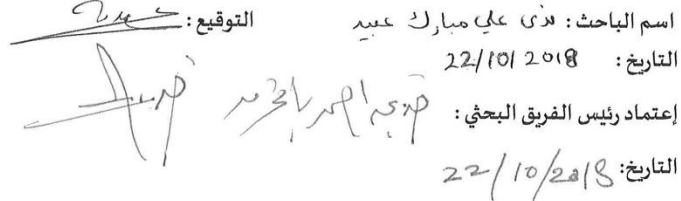 اسم الباحث: ندى علي مبارك عبيد التوقيع:
التاريخ: 22/10/2018
إعتماد رئيس الفريق البحثي: خديجة احمد
التاريخ: 22/10/2018